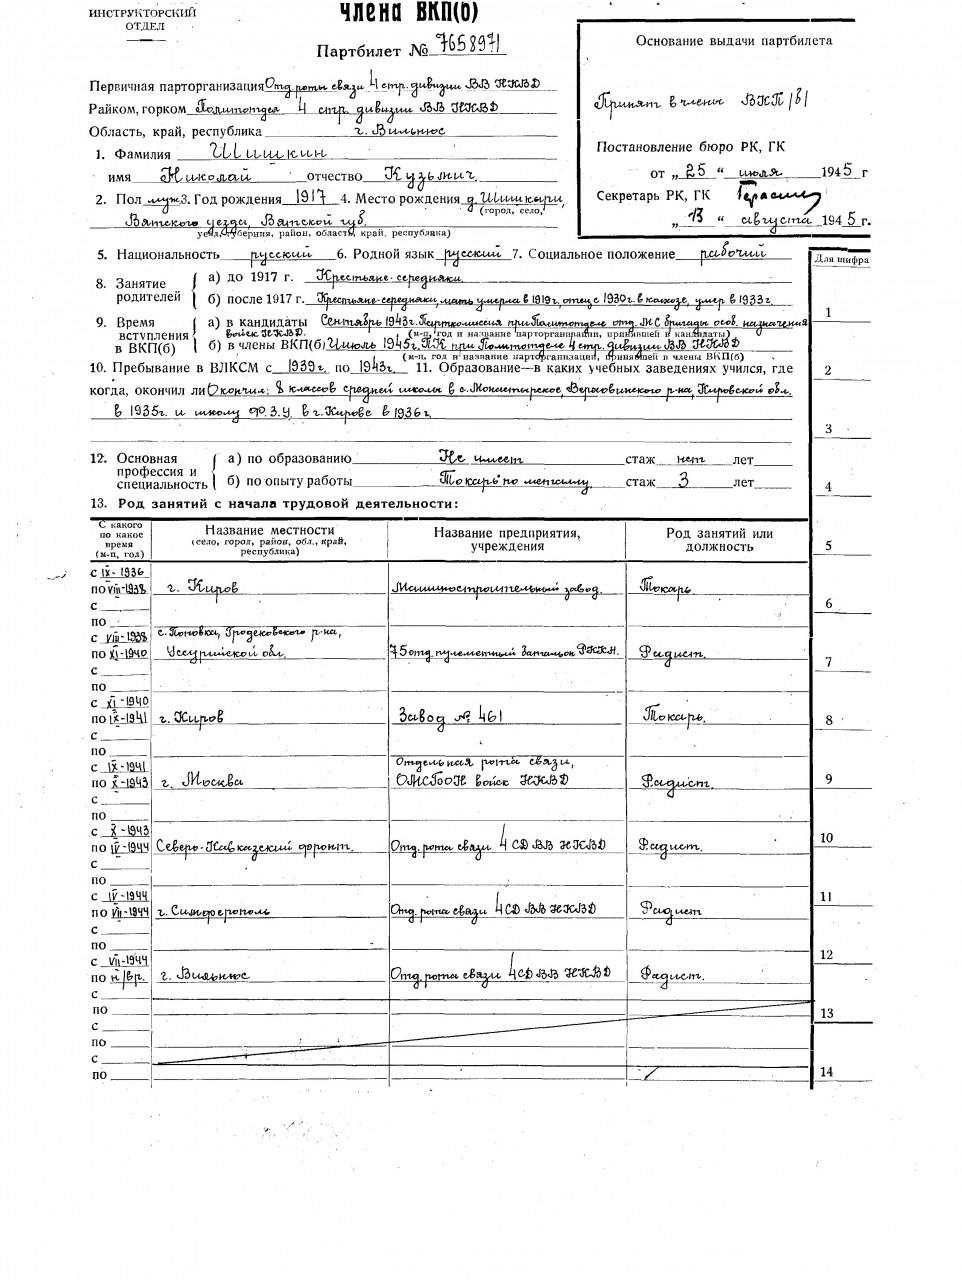 ИНСТРУКТОРСКИЙ
ОТДЕЛ
члена ВКП(б)
Партбилет № 7658971
Первичная парторганизация Отд. роты связи 4 стр. дивизии ВВ НКВД
Райком, горком Политотдел 4 стр. дивизии ВВ НКВД
Область, край, республика г. Вильнюс
1. Фамилия Шишкин
имя Николай отчество Кузьмич
2. Пол муж 3. Год рождения 1917 4. Место рождения д. Шишкари,
(город, село,
Вятского уезда, Вятской губ.
уезд, губерния, район, область, край, республика)
Основание выдачи партбилета
Принят в члены ВКП/б/
Постановление бюро РК, ГК
от „25“ июля 1945 г
Секретарь РК, ГК
„13“ августа 1945 г.
5. Национальность русский 6. Родной язык русский 7. Социальное положение рабочий
Для шифра
8. Занятие родителей
а) до 1917 г. Крестьяне-середняки
б) после 1917 г. Крестьяне-середняки, мать умерла в 1919 г., отец с 1930 г. в колхозе, умер в 1933 г.
9. Время вступления в ВКП(б)
а) в кандидаты Сентябрь 1943 г. Парткомиссия при Политотделе отд. МС бригады особ. назначения
войск НКВД.
(м-ц, год и название парторганизации, принявшей в кандидаты)
б) в члены ВКП(б) Июль 1945 г. ПК при Политотделе 4 стр. дивизии ВВ НКВД
(м-ц, год и название парторганизации, принявшей в члены ВКП(б)
10. Пребывание в ВЛКСМ с 1939 г. по 1943 г. 11. Образование—в каких учебных заведениях учился, где
когда, окончил ли Окончил: 8 классов средней школы в с. Монастырское, Верховинского р-на, Кировской обл.
в 1935 г. и школу Ф.З.У. в г. Кирове в 1936 г.
12. Основная профессия и специальность
а) по образованию Не имеет стаж нет лет
б) по опыту работы Токарь по металлу стаж 3 лет
13. Род занятий с начала трудовой деятельности:
С какого по какое время (м-ц, год)
Название местности (село, город, район, обл., край, республика)
Название предприятия, учреждения
Род занятий или должность
с IX-1936
по VIII-1938 г. Киров Машиностроительный завод. Токарь
с
по
с VIII-1938 с. Поповка, Гродековского р-на,
по XI-1940 Уссурийской обл. 75 отд. пулеметный батальон РККА. Радист.
с
по
с XI-1940
по IX-1941 г. Киров Завод № 461 Токарь.
с
по
с IX-1941 Отдельная рота связи,
по X-1943 г. Москва ОМСБОН войск НКВД Радист.
с
по
с X-1943
по IV-1944 Северо-Кавказский фронт. Отд. рота связи 4 СД ВВ НКВД Радист.
с
по
с IV-1944
по VII-1944 г. Симферополь Отд. рота связи 4 СД ВВ НКВД Радист
с
по
с VII-1944
по н/вр. г. Вильнюс Отд. рота связи 4 СД ВВ НКВД Радист.
с
по
с
по
с
по
1
2
3
4
5
6
7
8
9
10
11
12
13
14